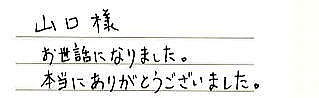 山口様
お世話になりました。
本当にありがとうございました。